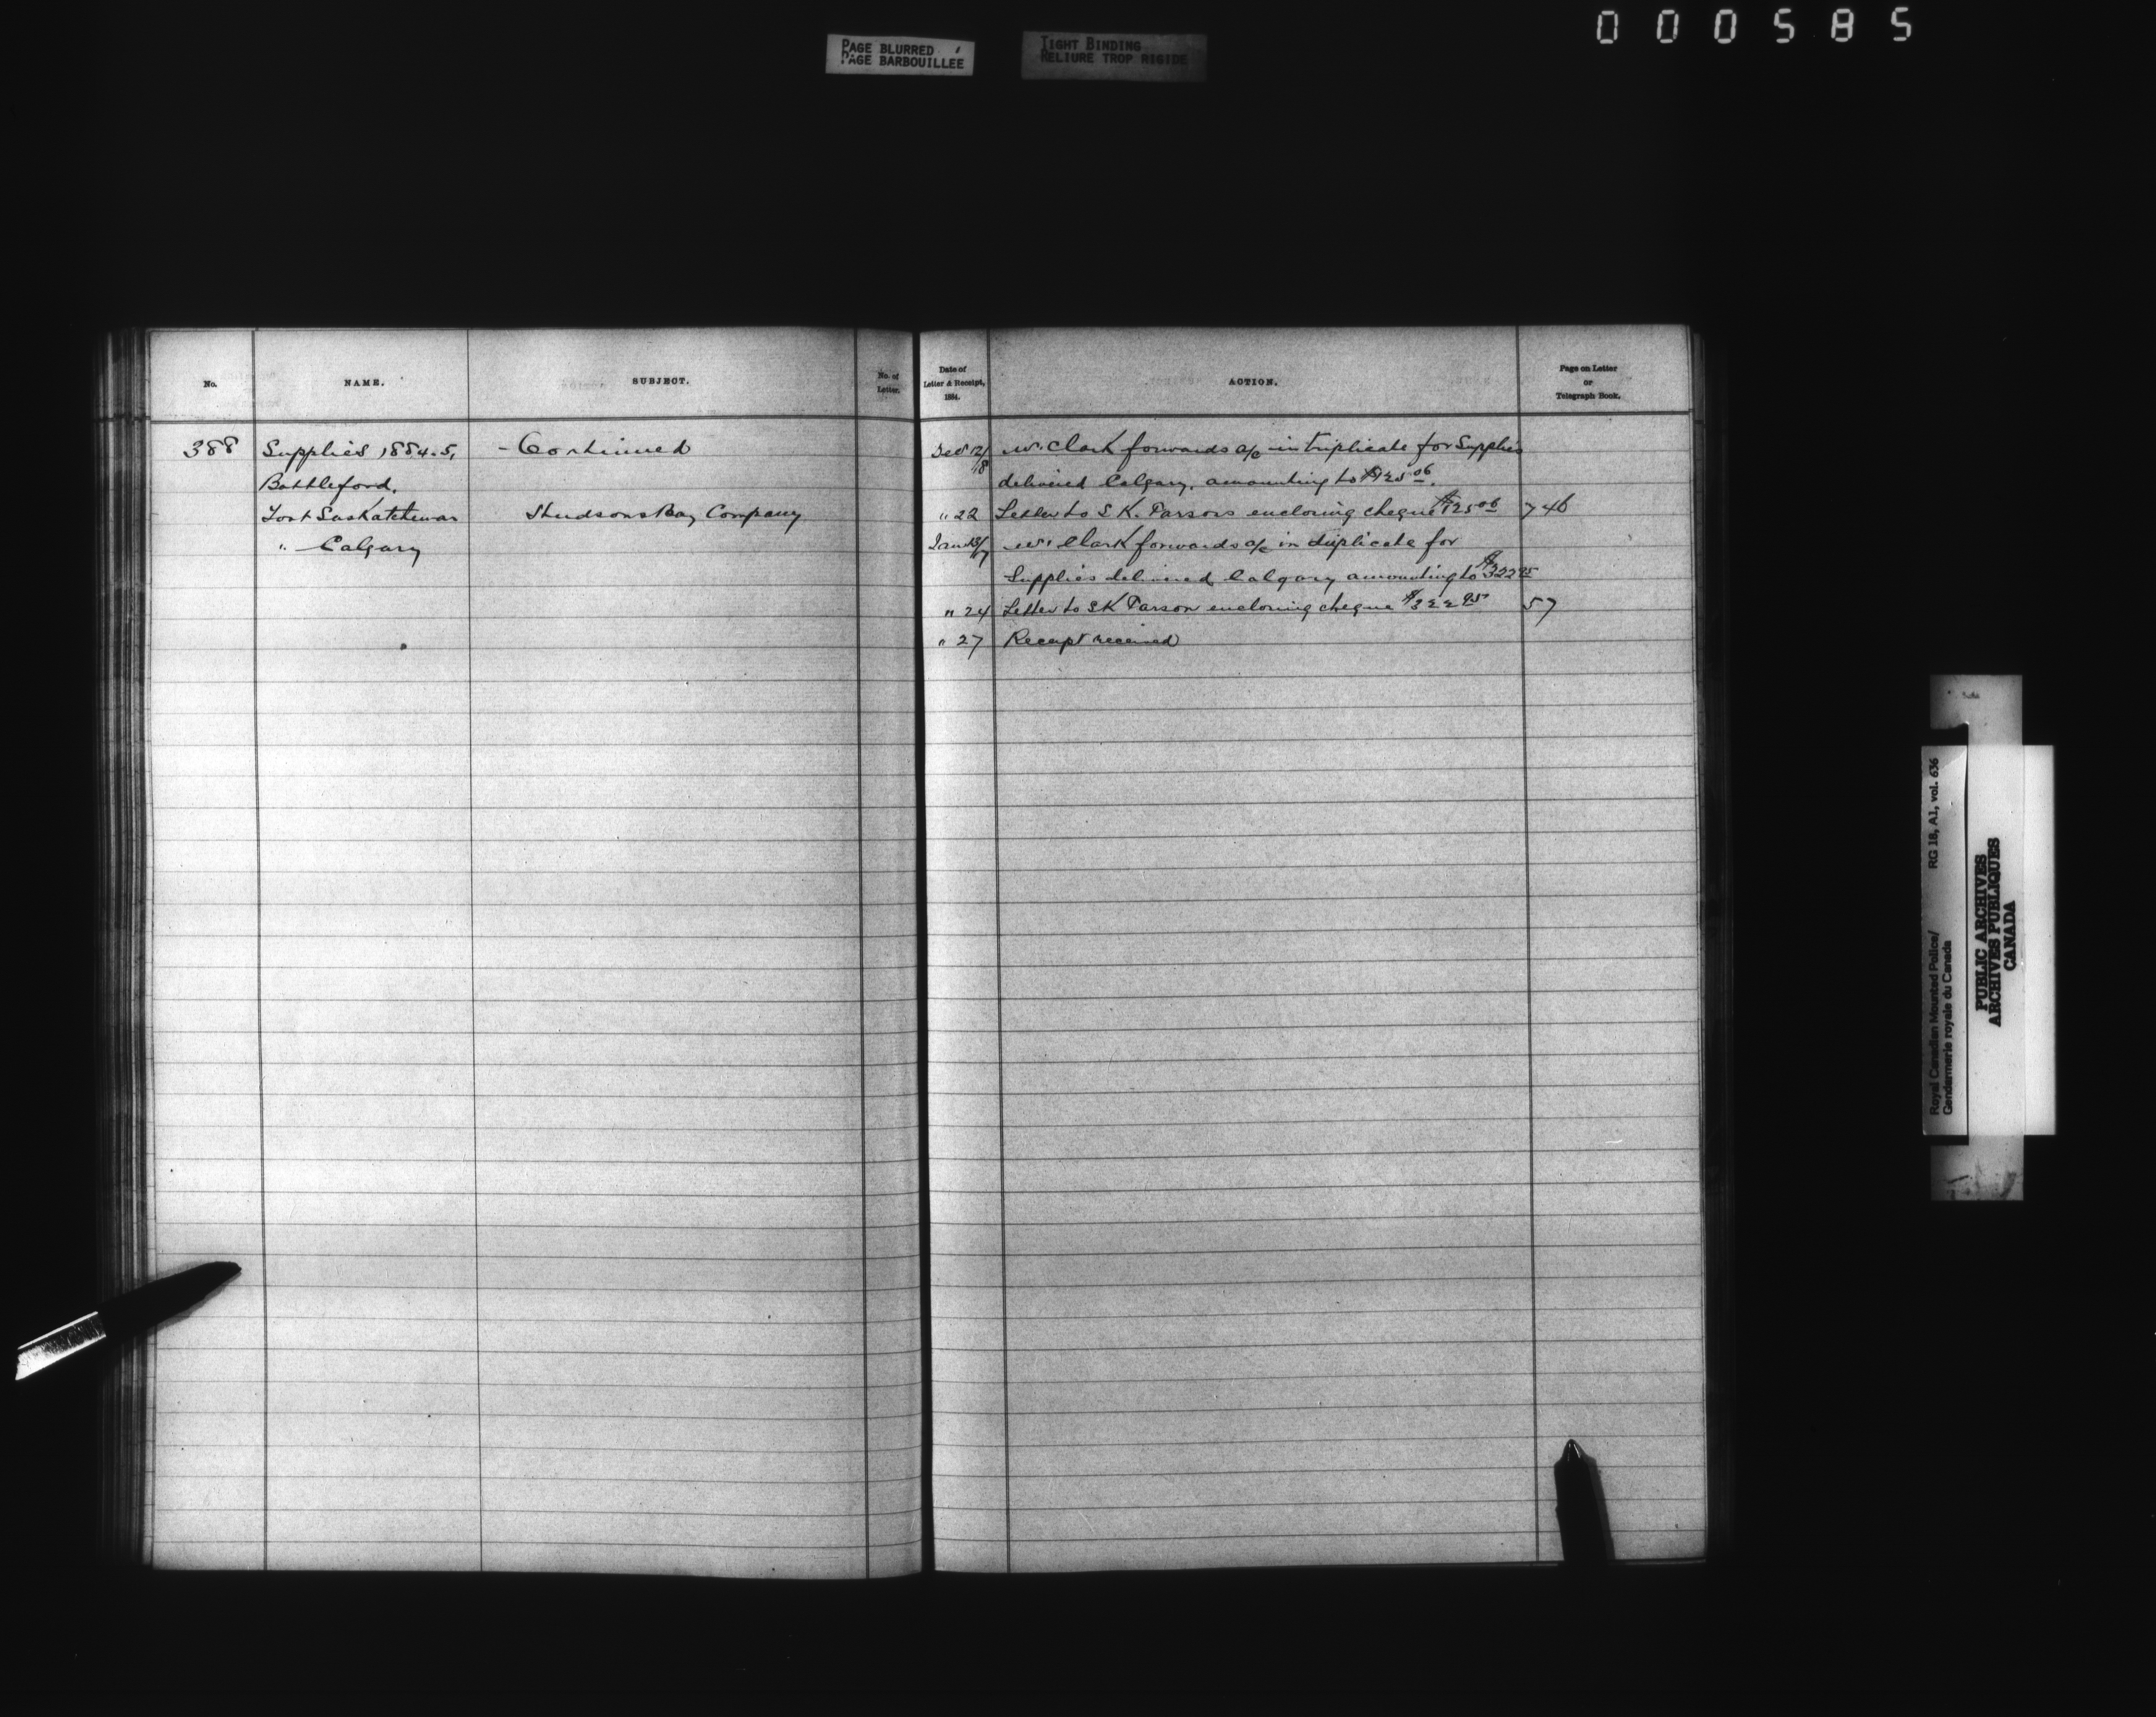 000585
PAGE BLURRED
PAGE BARBOUILLEE
TIGHT BINDING
RELIURE TROP RIGIDE
No.
NAME.
SUBJECT.
No. of
Letter.
Date of
Letter & Receipt,
1884.
ACTION.
Page on Letter
or
Telegraph Book.
388 Supplies 1884.5. - Continued
Battleford.
Fort Saskatchewan Hudsons Bay Company
" Calgary
Dec 12/18 Wm. Clark forwards a/c in triplicate for Supplies
delivered Calgary, amounting to $125.06.
" 22 Letter to S K. Parsons enclosing cheque $125.06 746
Jan 13/17 Wm Clark forwards a/c in duplicate for
Supplies delivered Calgary amounting to $322.95
" 24 Letter to S K Parson enclosing cheque $322.95 57
" 27 Receipt received
Royal Canadian Mounted Police/
Gendarmerie royale du Canada
RG 18, A1, vol. 636
PUBLIC ARCHIVES
ARCHIVES PUBLIQUES
CANADA